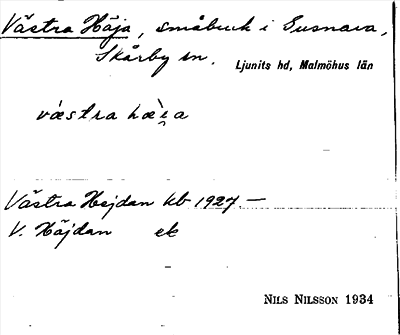 Västra Häja, småbruk i Gusnava,
Skårby sn. Ljunits hd, Malmöhus län
västra hæi̯a
Västra Hejdan kb 1927.—
V. Häjdan ek
NILS NILSSON 1934